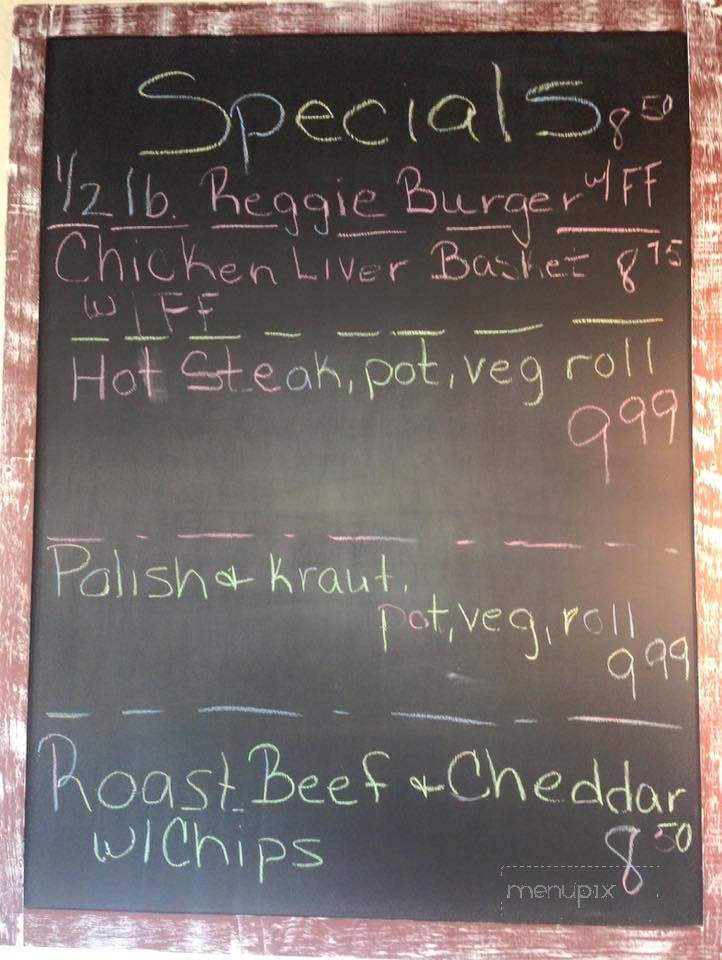 Specials 8 50
1/2 lb. Reggie Burger w/ FF
Chicken Liver Basket 8 75
w/ FF
Hot Steak, pot, veg roll
9 99
Polish & Kraut,
pot, veg, roll
9 99
Roast Beef & Cheddar
w/ Chips 8 50
menupix